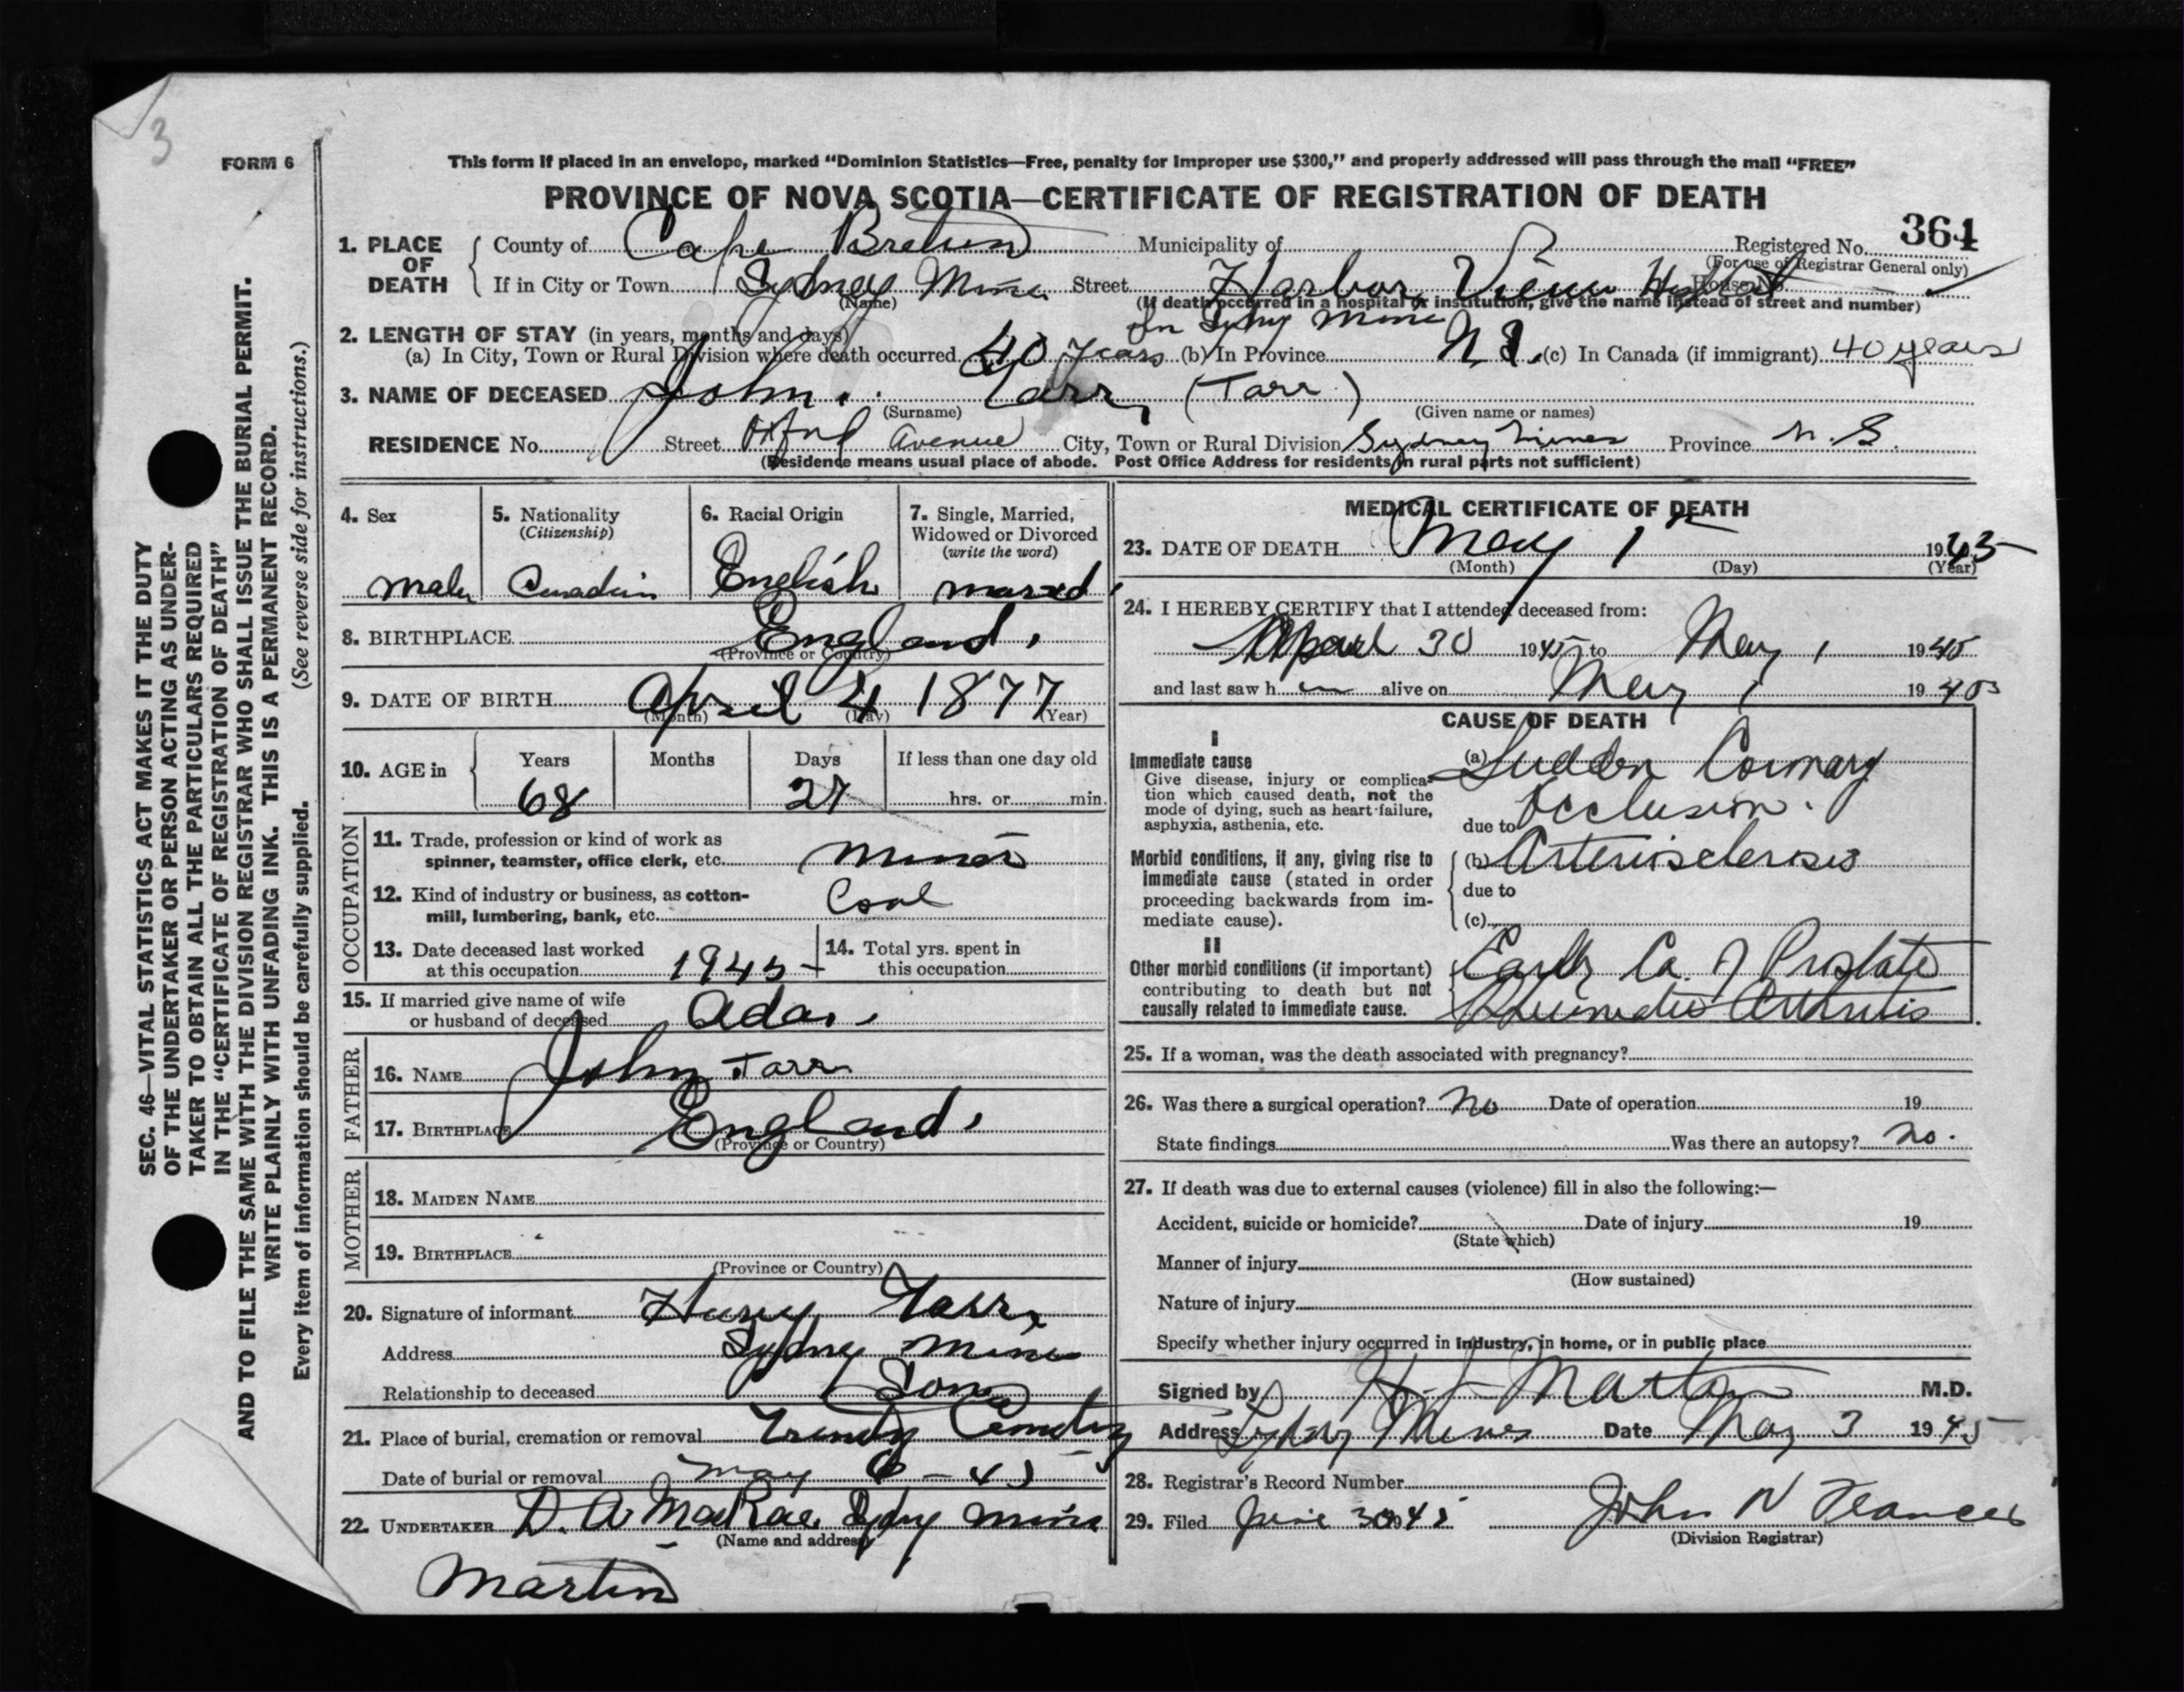 3
FORM 6
This form if placed in an envelope, marked “Dominion Statistics—Free, penalty for improper use $300,” and properly addressed will pass through the mail “FREE”
PROVINCE OF NOVA SCOTIA—CERTIFICATE OF REGISTRATION OF DEATH
1. PLACE OF DEATH County of Cape Breton Municipality of Registered No. 364
(For use of Registrar General only)
If in City or Town Sydney Mines Street Harbor View Hospital House No.
(Name) (If death occurred in a hospital or institution, give the name instead of street and number)
2. LENGTH OF STAY (in years, months and days) In Sydney Mines
(a) In City, Town or Rural Division where death occurred 40 years (b) In Province N S. (c) In Canada (if immigrant) 40 years
3. NAME OF DECEASED John Tarr (Tarr)
(Surname) (Given name or names)
RESIDENCE No. Street Oxford Avenue City, Town or Rural Division Sydney Mines Province N. S.
(Residence means usual place of abode. Post Office Address for residents in rural parts not sufficient)
4. Sex
male
5. Nationality
(Citizenship)
Canadian
6. Racial Origin
English
7. Single, Married,
Widowed or Divorced
(write the word)
married
8. BIRTHPLACE England.
(Province or Country)
9. DATE OF BIRTH April 4 1877
(Month) (Day) (Year)
10. AGE in Years Months Days If less than one day old
68 27 hrs. or min.
OCCUPATION
11. Trade, profession or kind of work as
spinner, teamster, office clerk, etc. Miner
12. Kind of industry or business, as cotton-
mill, lumbering, bank, etc. Coal
13. Date deceased last worked
at this occupation 1945
14. Total yrs. spent in
this occupation
15. If married give name of wife
or husband of deceased Ada
FATHER
16. NAME John Tarr
17. BIRTHPLACE England.
(Province or Country)
MOTHER
18. MAIDEN NAME
19. BIRTHPLACE
(Province or Country)
20. Signature of informant Harry Tarr
Address Sydney Mines
Relationship to deceased Son
21. Place of burial, cremation or removal Trinity Cemetery
Date of burial or removal May
22. UNDERTAKER D. A. MacRae Sydney Mines
(Name and address)
Martin
MEDICAL CERTIFICATE OF DEATH
23. DATE OF DEATH May 1 1945
(Month) (Day) (Year)
24. I HEREBY CERTIFY that I attended deceased from:
April 30 1945 to May 1 1945
and last saw h im alive on May 1 1945
CAUSE OF DEATH
I
Immediate cause
Give disease, injury or complica-
tion which caused death, not the
mode of dying, such as heart failure,
asphyxia, asthenia, etc.
(a) Sudden Coronary
Occlusion.
due to
Morbid conditions, if any, giving rise to
immediate cause (stated in order
proceeding backwards from im-
mediate cause).
(b) Arteriosclerosis
due to
(c)
II
Other morbid conditions (if important)
contributing to death but not
causally related to immediate cause.
Early Ca. of Prostate
Rheumatic Arthritis
25. If a woman, was the death associated with pregnancy?
26. Was there a surgical operation? No Date of operation 19
State findings Was there an autopsy? No.
27. If death was due to external causes (violence) fill in also the following:—
Accident, suicide or homicide? Date of injury 19
(State which)
Manner of injury
(How sustained)
Nature of injury
Specify whether injury occurred in industry, in home, or in public place
Signed by Martin M.D.
Address Sydney Mines Date May 3 1945
28. Registrar's Record Number
29. Filed June 30 1945 John N
(Division Registrar)
SEC. 46—VITAL STATISTICS ACT MAKES IT THE DUTY
OF THE UNDERTAKER OR PERSON ACTING AS UNDER-
TAKER TO OBTAIN ALL THE PARTICULARS REQUIRED
IN THE “CERTIFICATE OF REGISTRATION OF DEATH”
AND TO FILE THE SAME WITH THE DIVISION REGISTRAR WHO SHALL ISSUE THE BURIAL PERMIT.
WRITE PLAINLY WITH UNFADING INK. THIS IS A PERMANENT RECORD.
Every item of information should be carefully supplied. (See reverse side for instructions.)